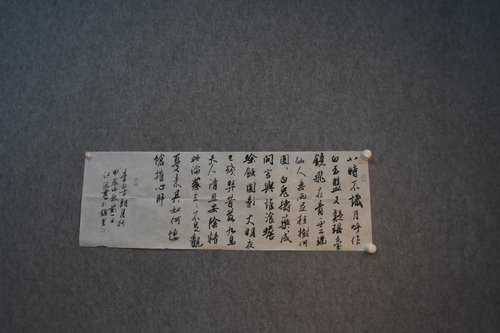 小時不識月呼作
白玉盤又疑瑤臺
鏡飛在青雲端
仙人垂兩足桂樹何
團白兔擣藥成
問言與誰餐蟾
蜍蝕圓影大明夜
已殘羿昔落九烏
天人清且安陰精
此淪惑去去不足觀
憂來其如何悽
愴摧心肝
月行